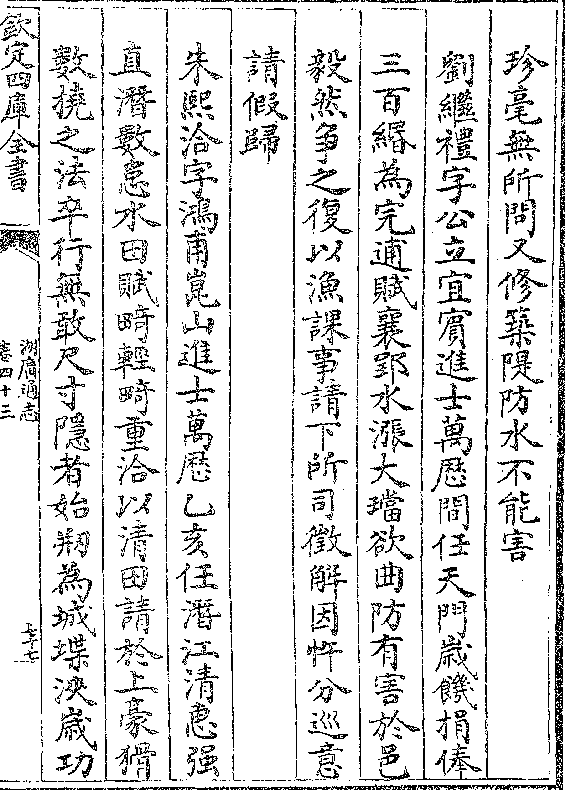 珍毫無所問又修築隄防水不能害
劉繼禮字公立宜賓進士萬歴間任天門歲饑捐俸
三百緡為完逋賦襄郢水漲大璫欲曲防有害於邑
毅然爭之復以漁課事請下所司徵解因忤分巡意
請假歸
朱熙洽字鴻甫崑山進士萬歴乙亥任潛江清惠强
直潛數患水田賦畸輕畸重洽以清田請於上豪猾
數撓之法卒行無敢尺寸隱者始刱為城堞浹歲功
欽定四庫全書
湖廣通志
卷四十三